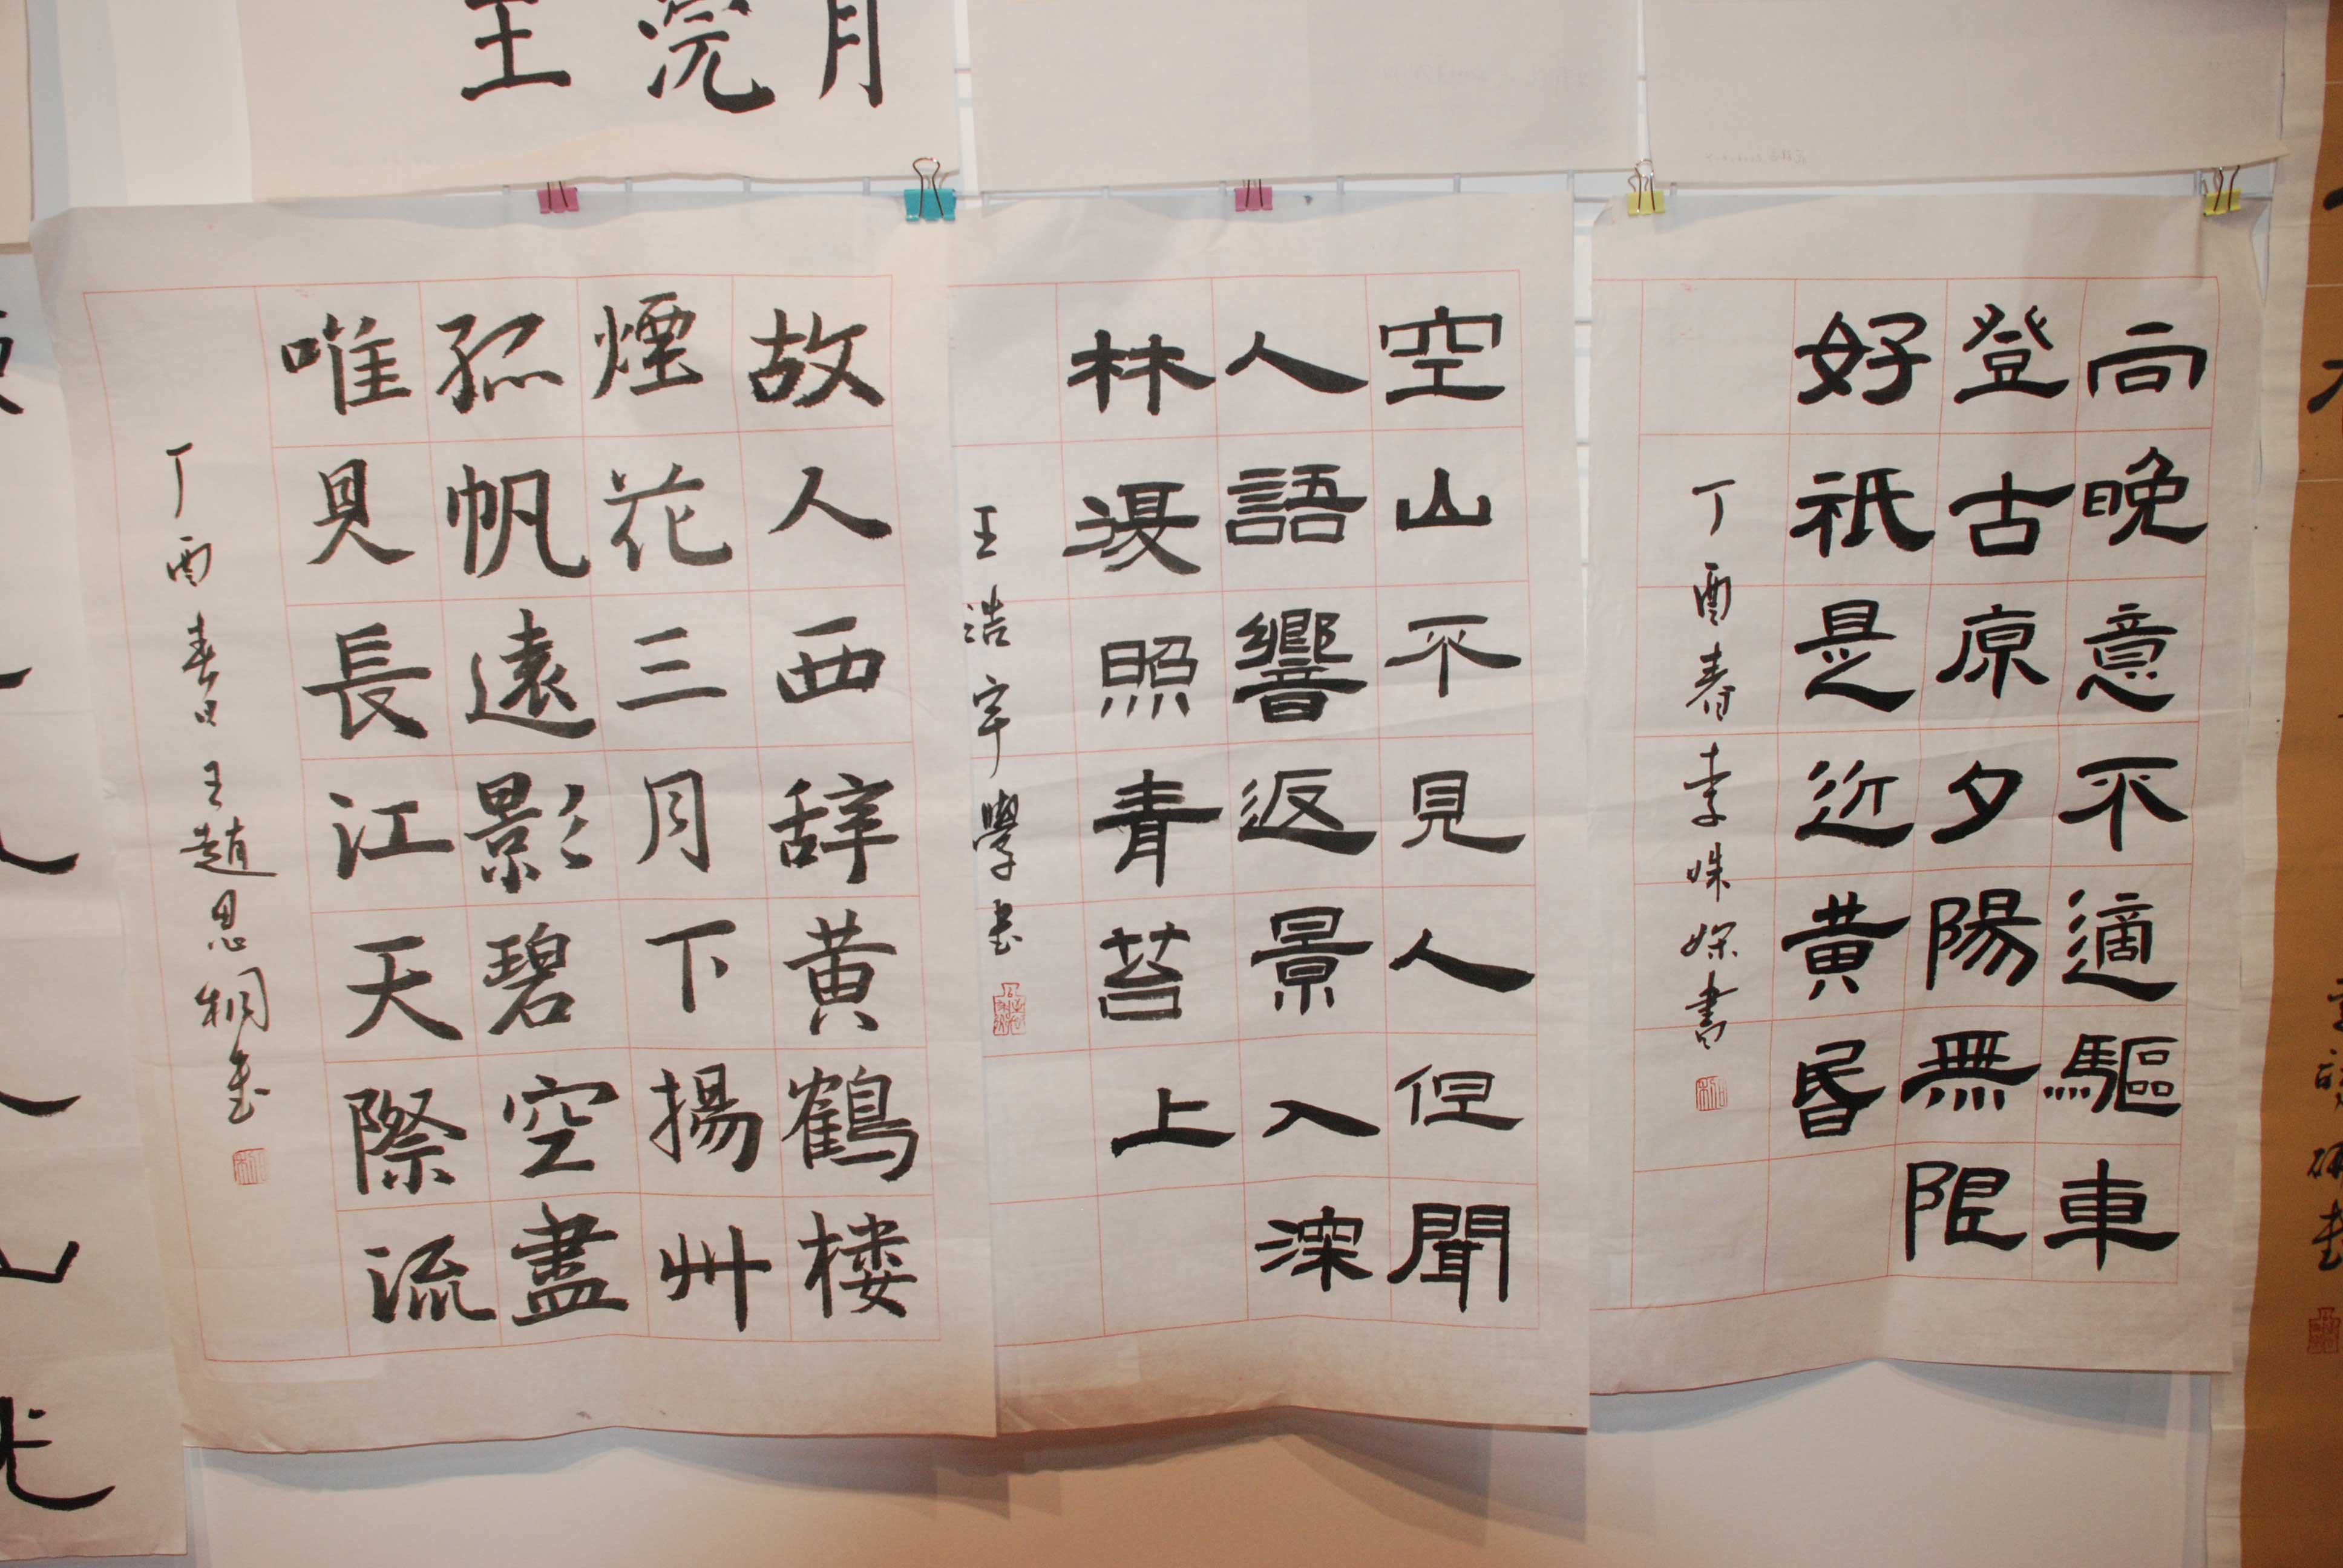 向晚意不適驅車
登古原夕陽無限
好祇是近黄昏
丁酉春李姝書
空山不見人但聞
人語響返景入深
林復照青苔上
王浩宇學書
故人西辞黄鶴楼
煙花三月下揚州
孤帆遠影碧空盡
唯見長江天際流
丁酉春日王趙思桐書